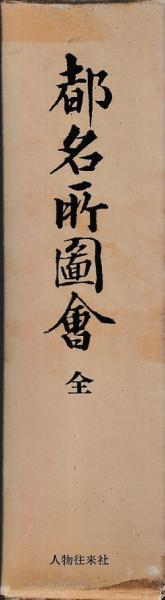 都名所圖會
全
人物往来社